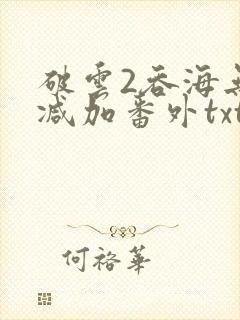 破雲2吞海無
减加番外txt
何裕華